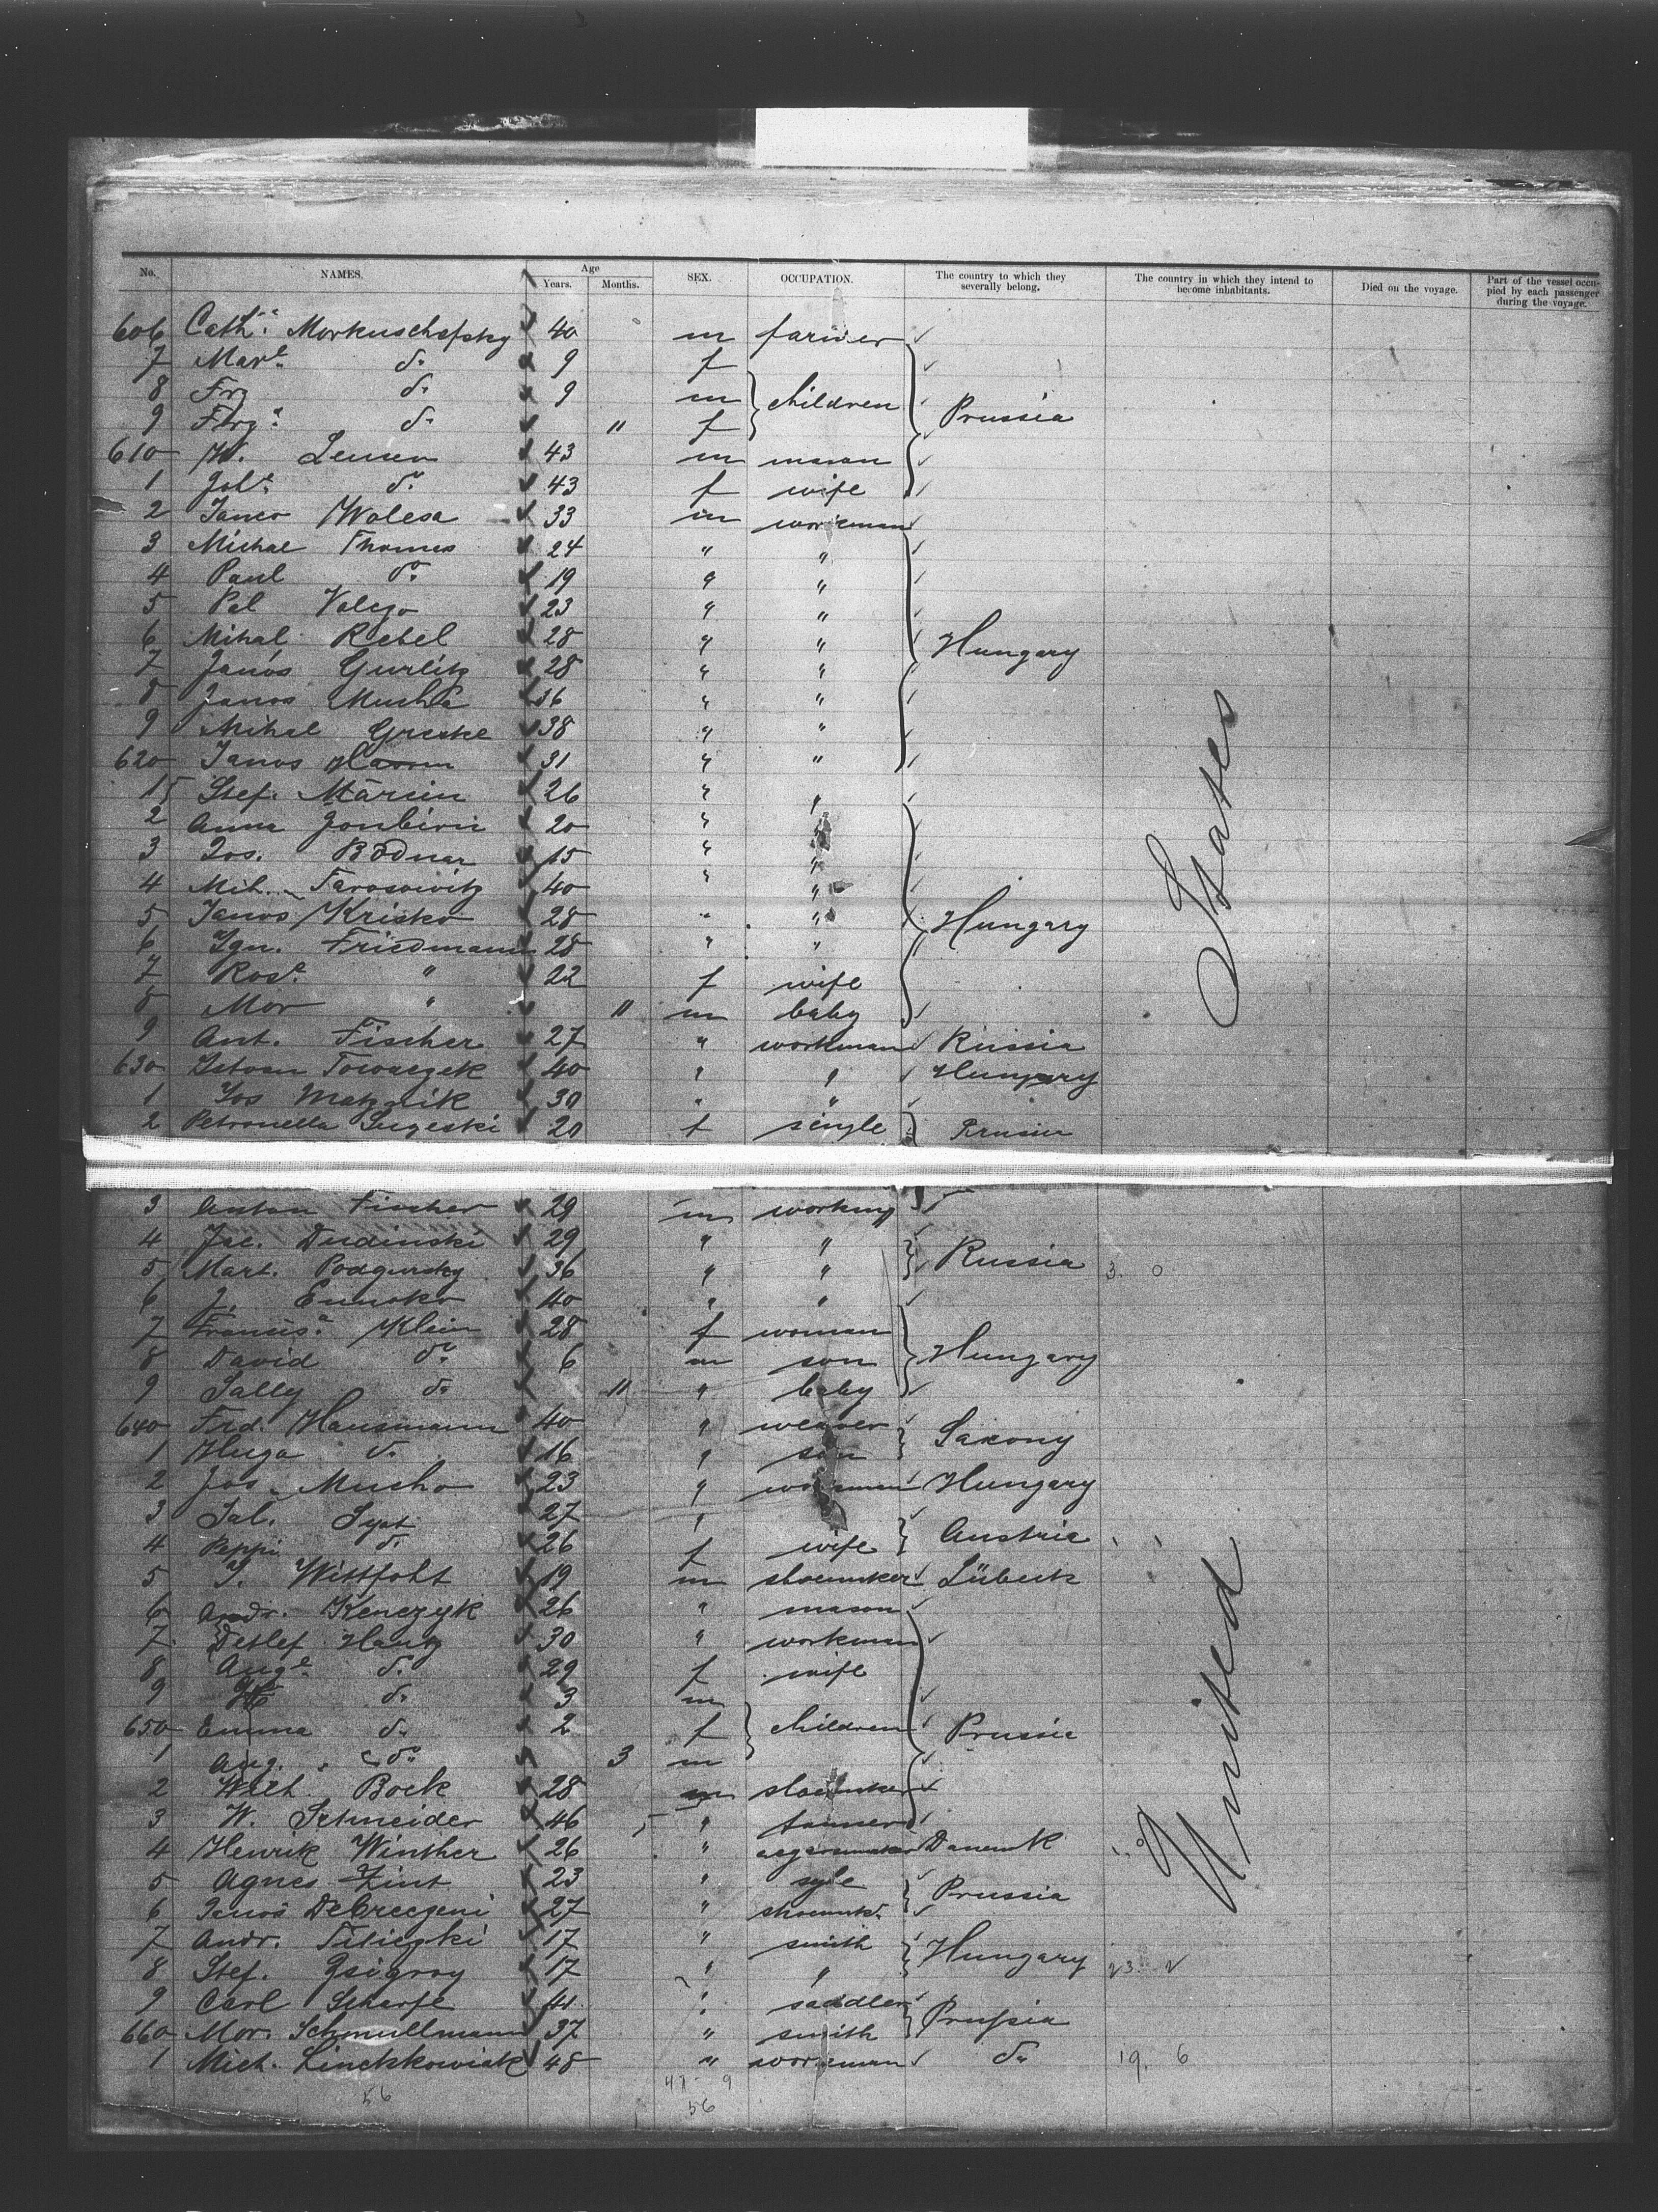 No. NAMES. Age Years. Months. SEX. OCCUPATION. The country to which they severally belong. The country in which they intend to become inhabitants. Died on the voyage. Part of the vessel occupied by each passenger during the voyage.
606 Cath.ª Morkuschefsky 40 m farmer
7 Mar.e do 9 f
8 Frz do 9 m children Prussia
9 do 11 f
610 W. Lensen 43 m mason
1 Joh.ª do 43 f wife
2 Janco Walesa 33 m workman
3 Michae Thomes 24 " "
4 Paul do 19 " "
5 Pal 23 " "
6 Mihal Rebel 28 " " Hungary
7 Janos Gurlitz 28 " "
8 Janos Mucha 36 " "
9 Mihal Greske 38 " "
620 Janos 31 " "
1 Stef. Marcin 26 " "
2 Anna 20 " "
3 Jos. Bodnar 15 " "
4 Mih. Tarosowitz 40 " "
5 Janos Krisko 28 " " Hungary
6 Ign. Friedmann 28 " "
7 Ros.e " 22 f wife
8 Mor " 11 m baby
9 Ant. Fischer 27 " workman Russia
630 Istvan Towarzek 40 " " Hungary
1 Jos 30 " "
2 Petronella 20 f single Prussia
3 Anton Fischer 29 m working
4 Jac. Dudinski 29 " "
5 Mart. Podgursky 36 " " Russia 3. 0
6 J. 40 " "
7 Francis.ª Klein 28 f woman
8 David do 6 m son Hungary
9 Sally do 11 " baby
640 Frd. Hausmann 40 " weaver
1 Hugo do 16 " son Saxony
2 Jos. Mucho 23 " workman Hungary
3 Sal. 27 "
4 Peppi do 26 f wife Austria
5 J. Wittfoht 19 m shoemker Lübeck
6 Andr. Kenczyk 26 " mason
7 Detlef Hantz 30 " workman
8 Aug.e do 29 f wife
9 do 3 m
650 Emma do 2 f children Prussia
1 Aug. do 3 m
2 Wilh. Bock 28 m shoemker
3 W. Schneider 46 " tanner
4 Henrik Winther 26 " Danemk
5 Agnes Zint 23 " sgle Prussia
6 Janos Debreczeni 27 " shoemk.
7 Andr. 17 " smith
8 Stef. 17 " " Hungary 23. 2
9 Carl Scharfe 41 " saddler Prussia
660 Mor. Schmullmann 37 " smith
1 Mich. Linckkowiak 48 " workman do 19. 6
56 47 - 9
56
United States